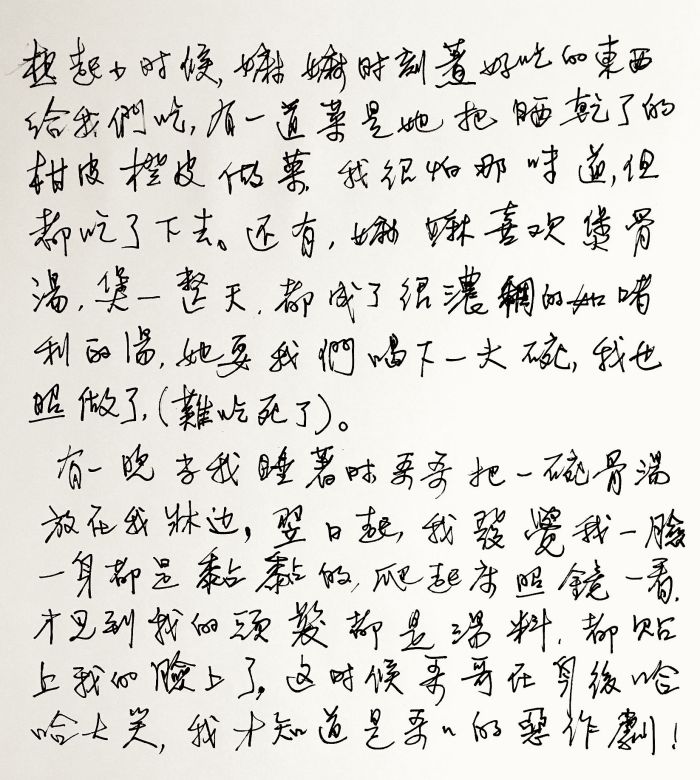 想起小时候,嫲嫲时刻煮好吃的東西
给我們吃,有一道菜是她把晒乾了的
柑皮橙皮做菜,我很怕那味道,但
都吃了下去。还有,嫲嫲喜欢煲骨
湯,煲一整天,都成了很濃稠的如啫
利的湯,她要我們喝下一大碗,我也
照做了,(難吃死了)。
有一晚当我睡著时哥哥把一碗骨湯
放在我牀边,翌日起,我發覺我一臉
一身都是黏黏的,爬起床照鏡一看,
才見到我的頭髮都是湯料,都贴
上我的臉上了,这时候哥哥在身後哈
哈大笑,我才知道是哥〃的惡作劇!